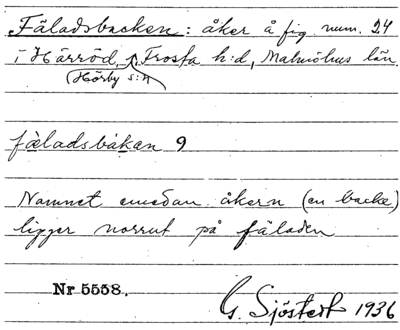 Fäladsbacken: åker å fig. num. 24
i Härröd, Frosta h:d, Malmöhus län.
(Hörby s:n)
fàladsbákan 9
Namnet emedan åkern (en backe)
ligger norrut på fäladen
Nr 5558.
G. Sjöstedt 1936